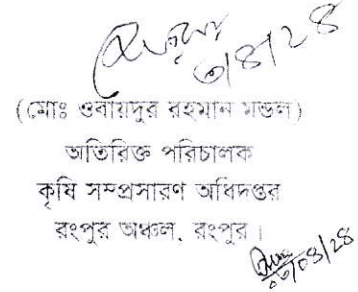 ৩/৪/২৪
(মোঃ ওবায়দুর রহমান মন্ডল)
অতিরিক্ত পরিচালক
কৃষি সম্প্রসারণ অধিদপ্তর
রংপুর অঞ্চল, রংপুর।
০৩/০৪/২৪